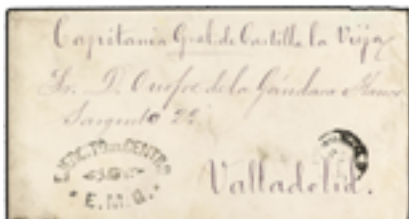 Capitania Gral. de Castilla la Vieja
Sr. D. Onofre de la Gándara
Sargento 2º
EJERCITO DEL CENTRO
E. M. G.
Valladolid.